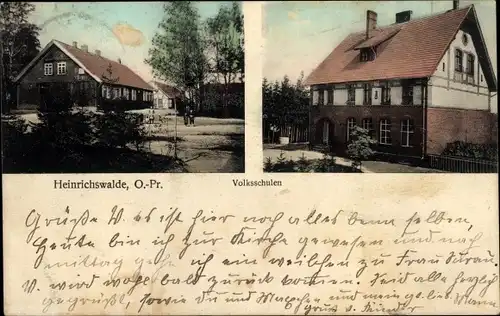 Heinrichswalde, O.-Pr.
Volksschulen
Grüße V. es ist hier noch alles beim selben,
heute bin ich zur Kirche gewesen und nach
mittag geh ich ein weilchen zu Frau
V. wird wohl bald zurück kommen. Seid alle herzlich
gegrüßt, sowie du und und mein
Gruß v.